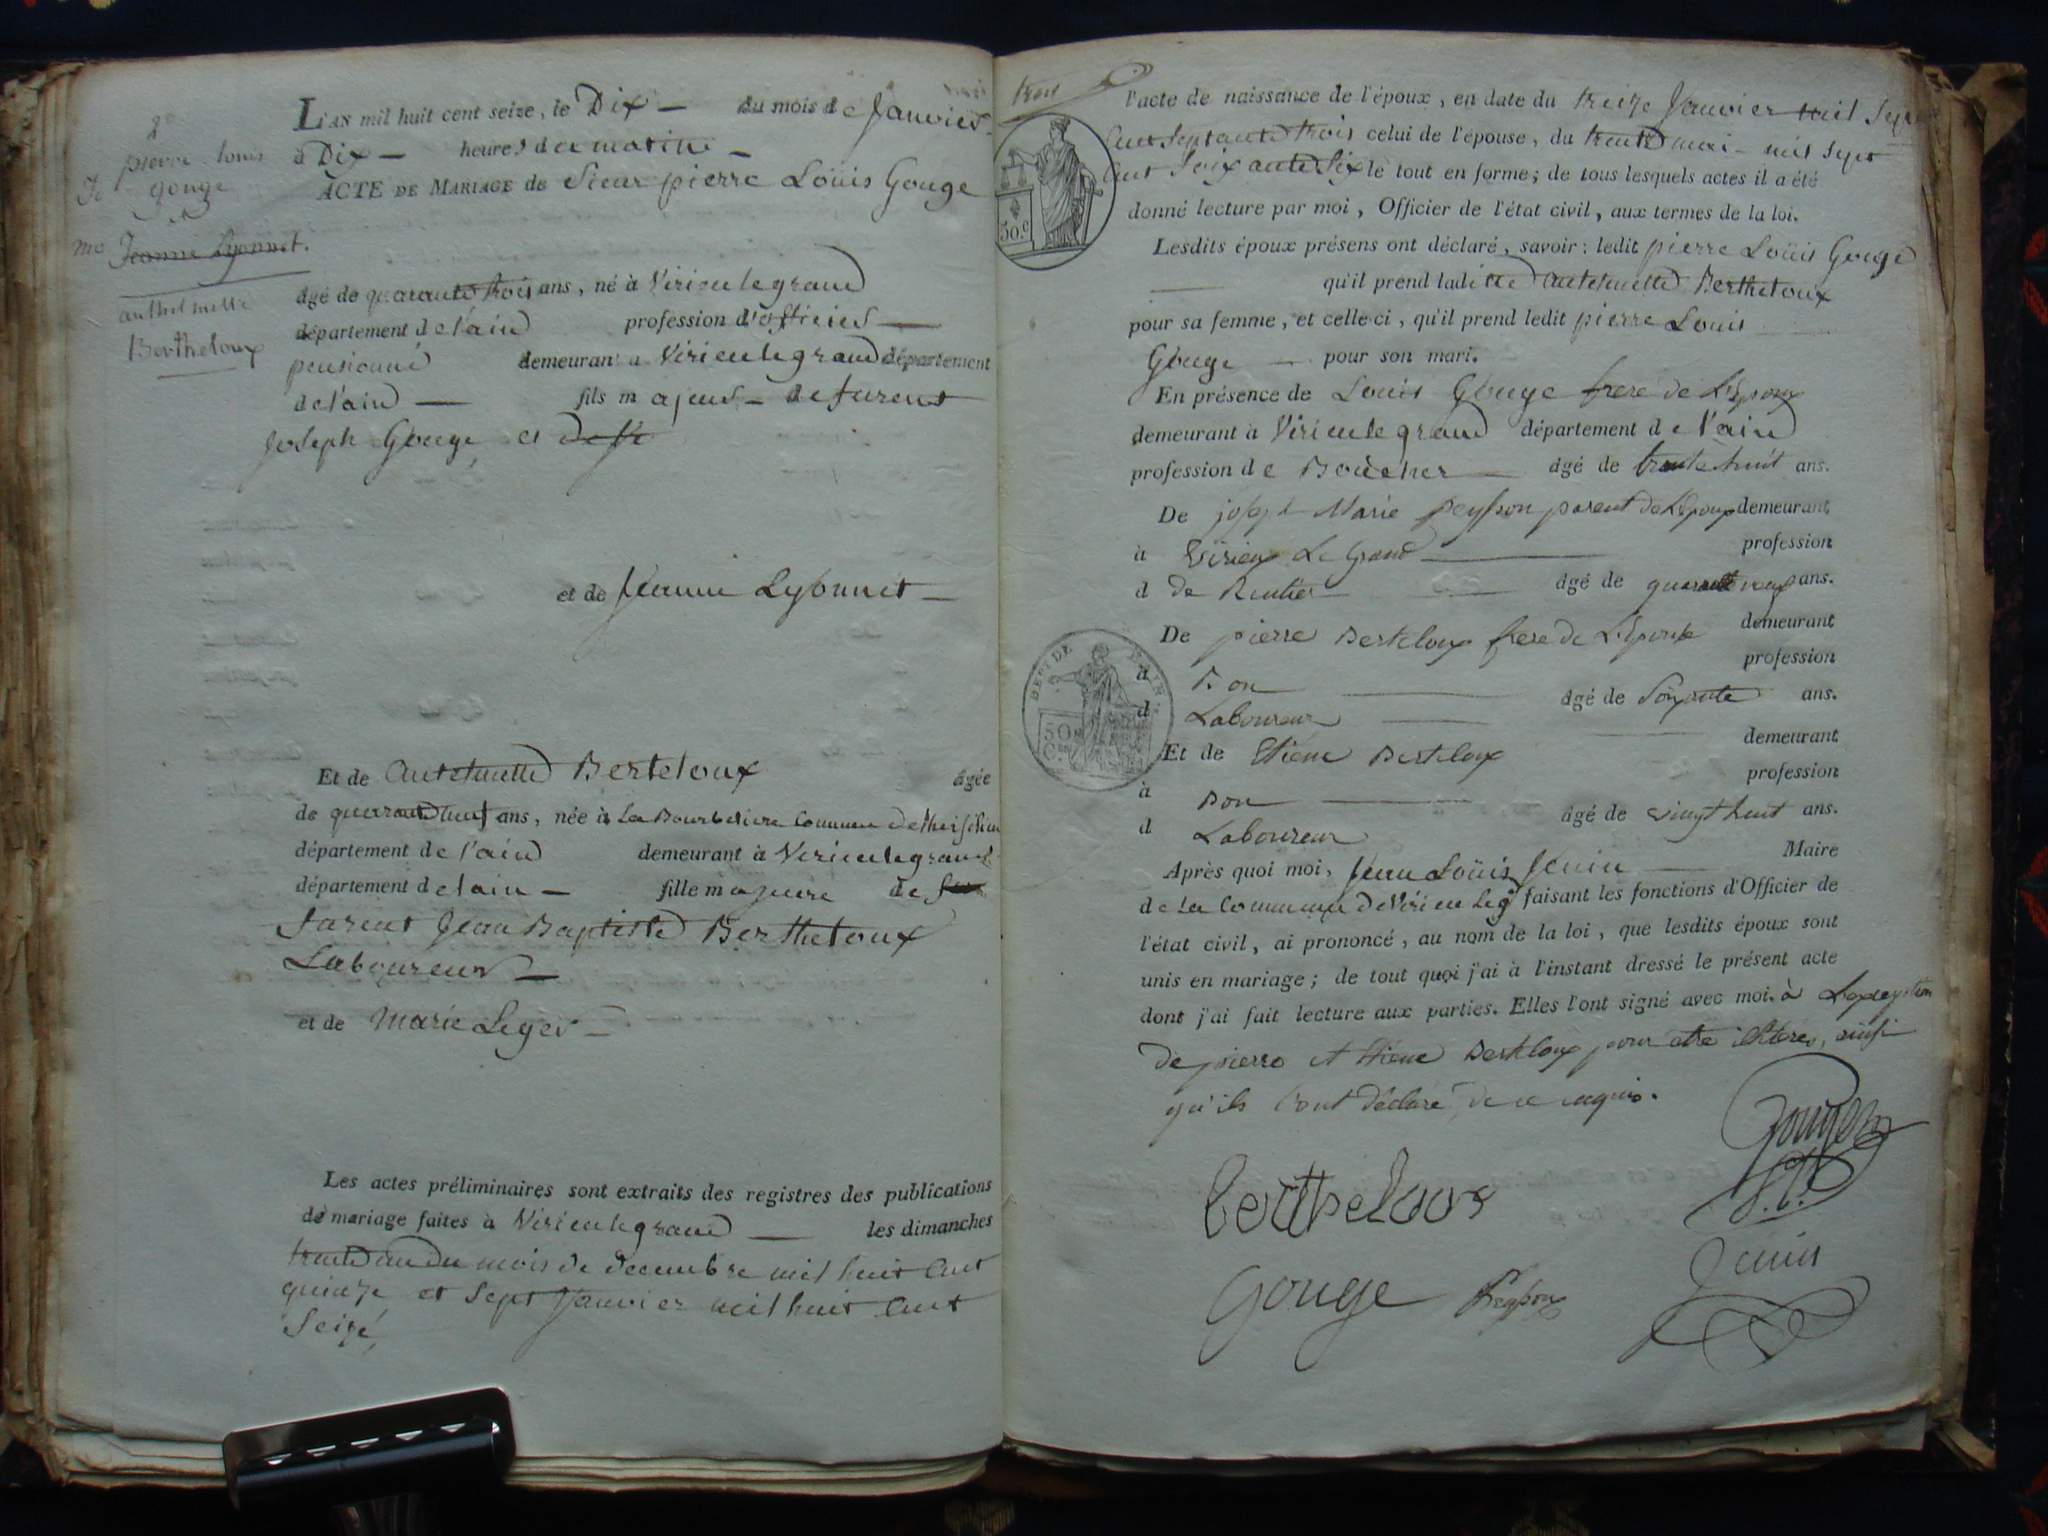 2e
pierre louis
gouge
et
Jeanne Lyonnet.
anthelmette
Bertheloux
L'AN mil huit cent seize, le Dix — du mois de Janvier
à Dix — heures du matin —
ACTE DE MARIAGE de Sieur pierre Loüis Gouge
âgé de quarante trois ans, né à Virieulegrand
département de l'ain profession d'officier —
pensionné demeurant à Virieulegrand département
de l'ain — fils majeur — de fureut
Joseph Gouge, et
et de Jeanne Lyonnet —
Et de antelmette Berteloux âgée
de quarante neuf ans, née à La Bourbeliere Commune de
département de l'ain demeurant à Virieulegrand
département de lain — fille majeure de
fureut Jean Baptiste Bertheloux
Laboureur —
et de Marie Leger —
Les actes préliminaires sont extraits des registres des publications
de mariage faites à Virieulegrand — les dimanches
trente un du mois de decembre mil huit cent
quinze et Sept Janvier mil huit cent
Seize,
trois
l'acte de naissance de l'époux, en date du treize Janvier mil Sept
cent septante trois celui de l'épouse, du trente mai — mil sept
cent Soixante Six le tout en forme; de tous lesquels actes il a été
donné lecture par moi, Officier de l'état civil, aux termes de la loi.
50.c
Lesdits époux présens ont déclaré, savoir: ledit pierre Loüis Gouge
— qu'il prend ladite antelmette Bertheloux
pour sa femme, et celle ci, qu'il prend ledit pierre Louis
Gouge — pour son mari.
En présence de Louis Gouge frere de L'Epoux
demeurant à Virieulegrand département de l'ain
profession de Boucher — âgé de trente huit ans.
De joseph Marie Peysson parent de L'Epoux demeurant
à Virieu Le Grand — profession
d de Rentier — âgé de quarante neuf ans.
De pierre Berteloux frere de L'Epouse demeurant
à Bon — profession
d Laboureur — âgé de Soixante ans.
DEPT DE L'AIN
50
C.
Et de Etiene Berteloux demeurant
à Bon — profession
d Laboureur âgé de vingt huit ans.
Après quoi moi, Jean Loüis Jenin — Maire
de La Commune de Virieu Leg. faisant les fonctions d'Officier de
l'état civil, ai prononcé, au nom de la loi, que lesdits époux sont
unis en mariage; de tout quoi j'ai à l'instant dressé le présent acte
dont j'ai fait lecture aux parties. Elles l'ont signé avec moi. à L'exeption
de pierre et Etiene Berteloux pour etre illiteres, ainsi
qu'ils l'ont déclaré de ce enquis.
Gouge
bertheloux
Jenin
Gouge Peysson